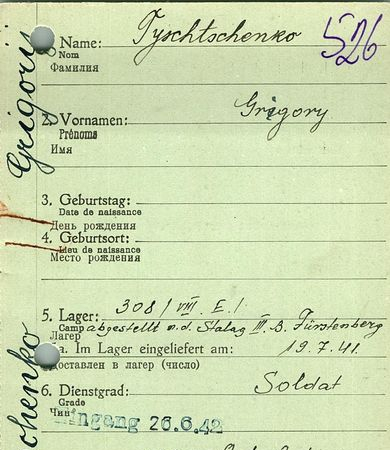 526
1. Name: Tyschtschenko
Nom
Фамилия
2. Vornamen: Grigory
Prénoms
Имя
3. Geburtstag:
Date de naissance
День рождения
4. Geburtsort:
Lieu de naissance
Место рождения
5. Lager: 308/VIII. E.
Camp abgestellt v.d. Stalag III. B. Fürstenberg
Лагер
a. Im Lager eingeliefert am: 19.7.41.
доставлен в лагер (число)
6. Dienstgrad: Soldat
Grade
Чин
Eingang 26.6.42
Grigory
chenko